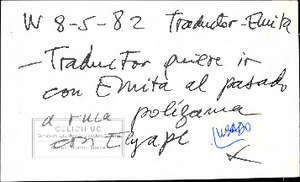 W 8-5-82 Traductor-Emita
-Traductor quiere ir
con Emita al pasado
a ruca poligama
CELICH UC
con Elyape
USADO